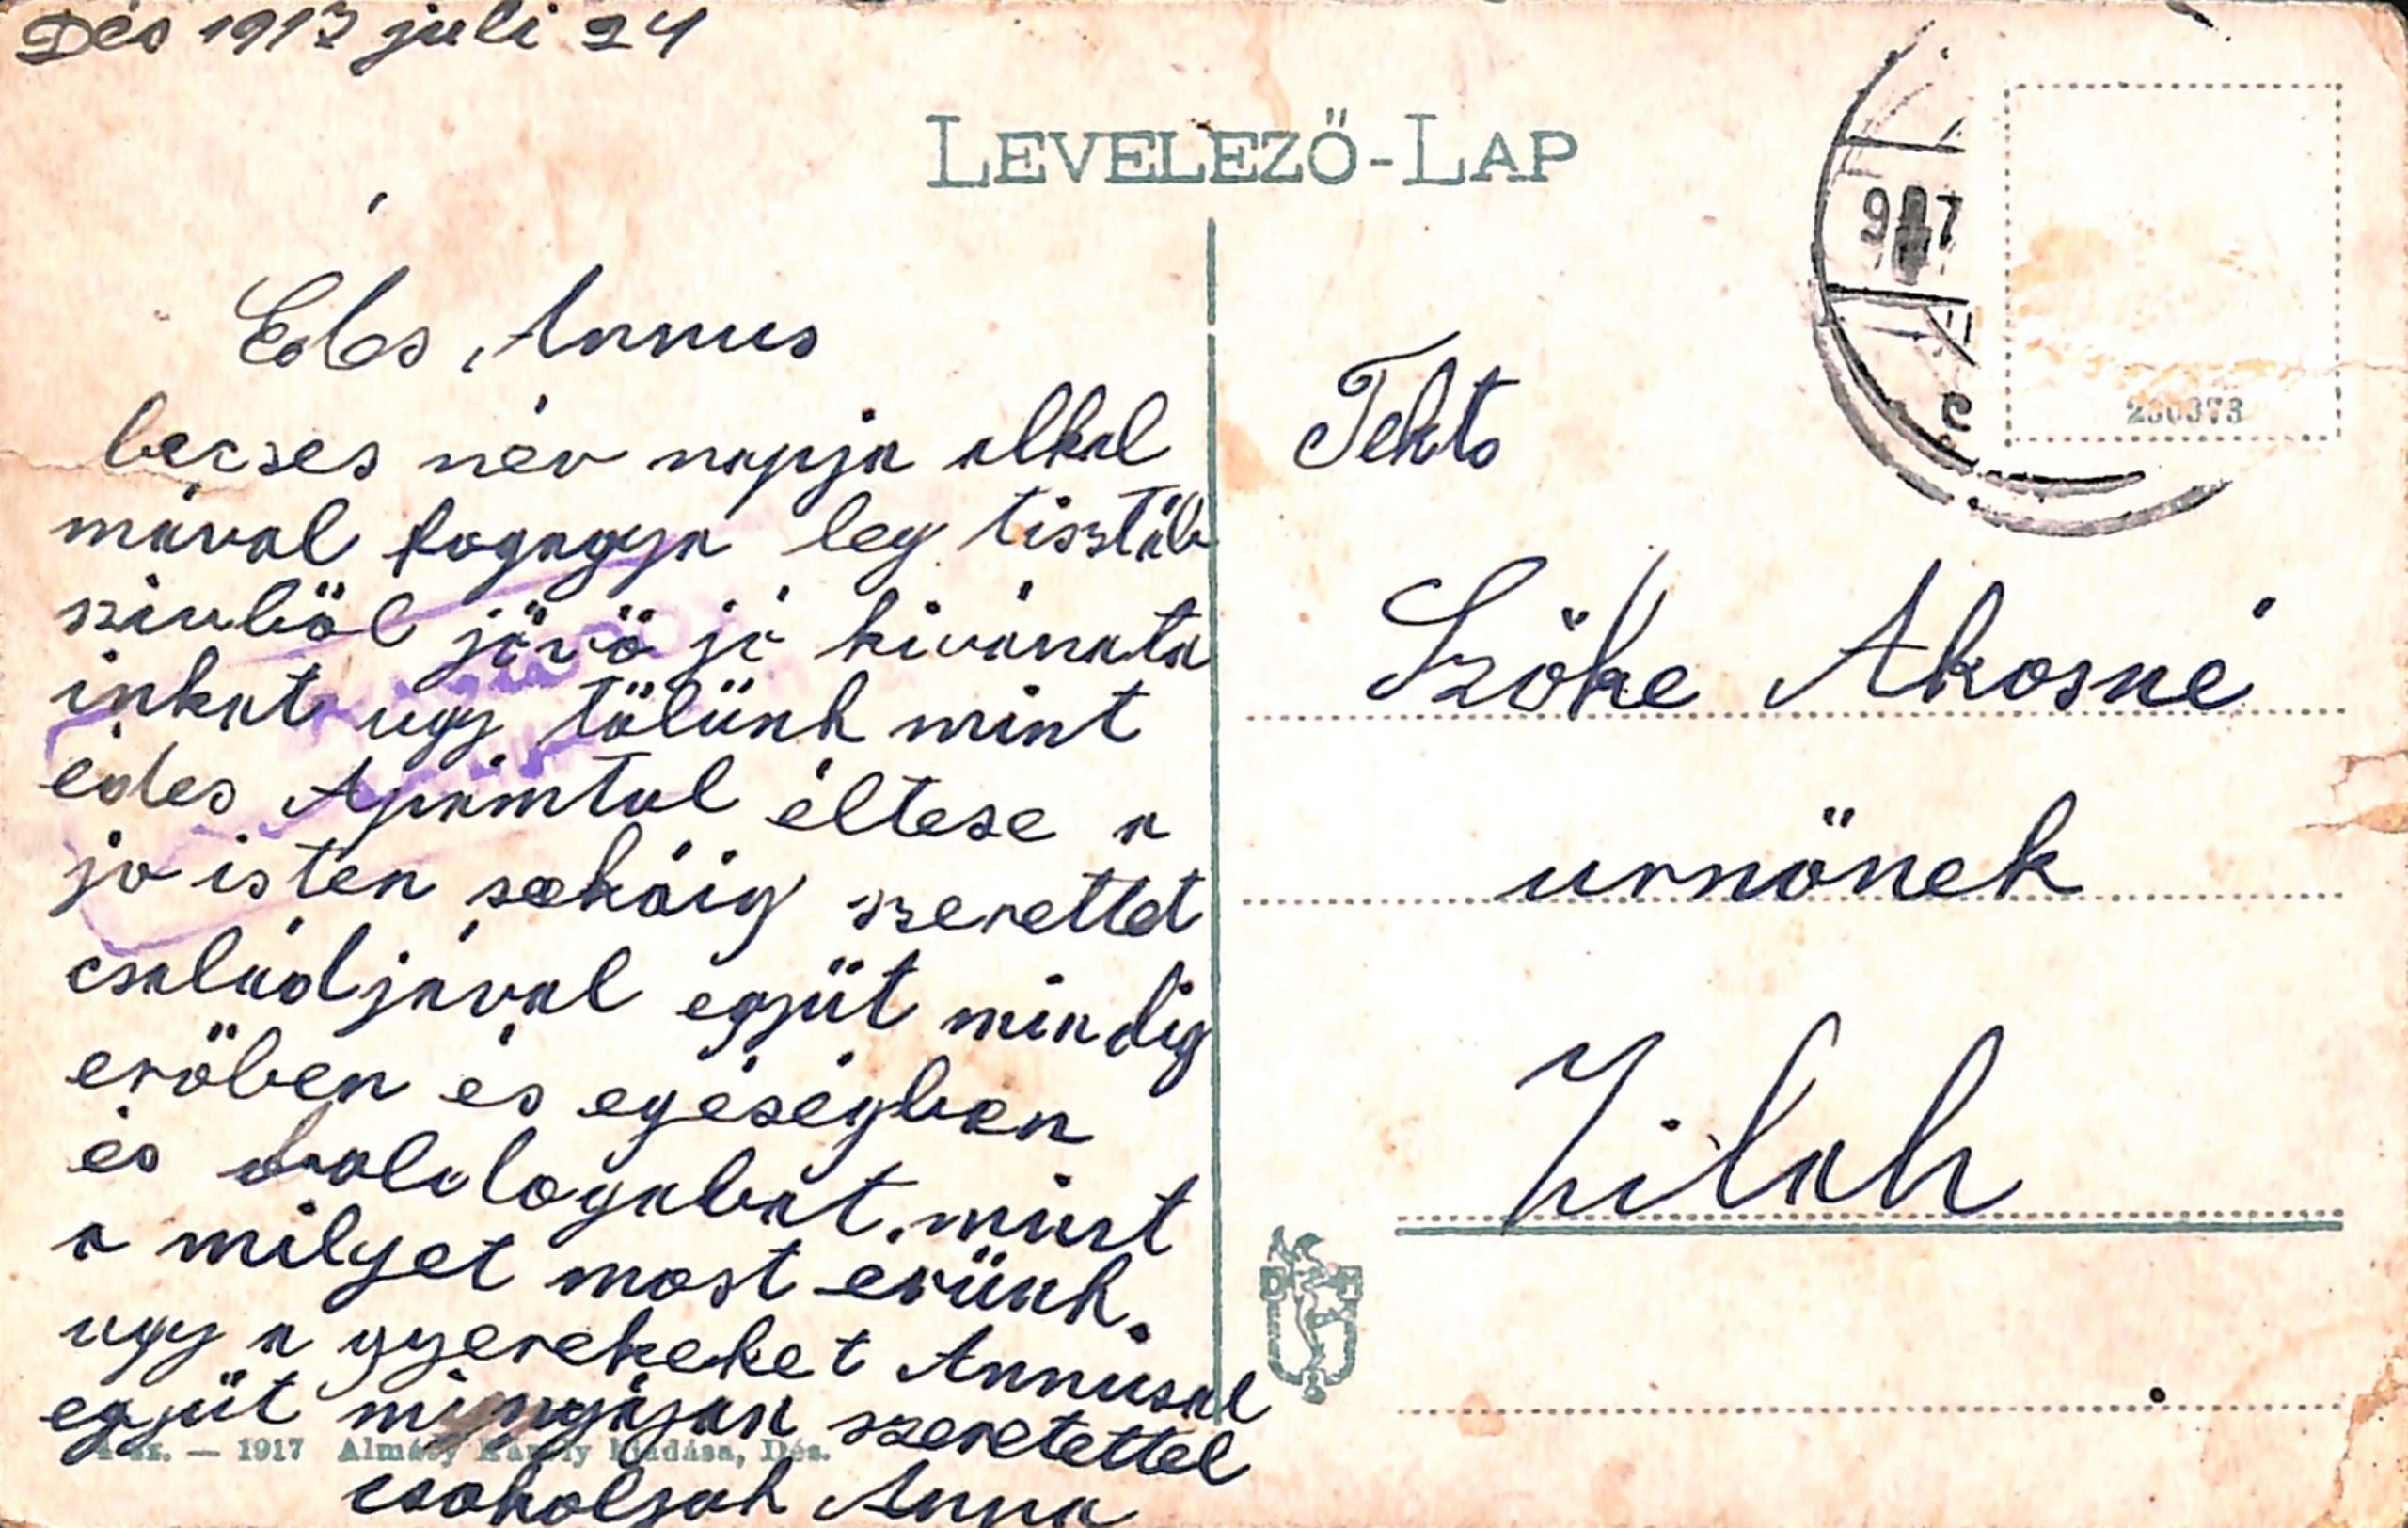 Dés 1917 juli 24
LEVELEZŐ-LAP
917
230373
Édes Annus
becses név napja alkal
mával fogagya leg tisztáb
szivböl jövö jó kivánata
inkat ugy tölünk mint
édes Apámtul éltese a
jo isten sokáig szerettet
családjával együt mindig
eröben és egéségben
és
mint
a milyet most érünk.
ugy a gyerekeket Annusal
együt minyájan szeretettel
csokoljuk Anna
Tekto
Szöke Akosné
urnönek
Zilah
— 1917 Almásy Károly kiadása, Dés.